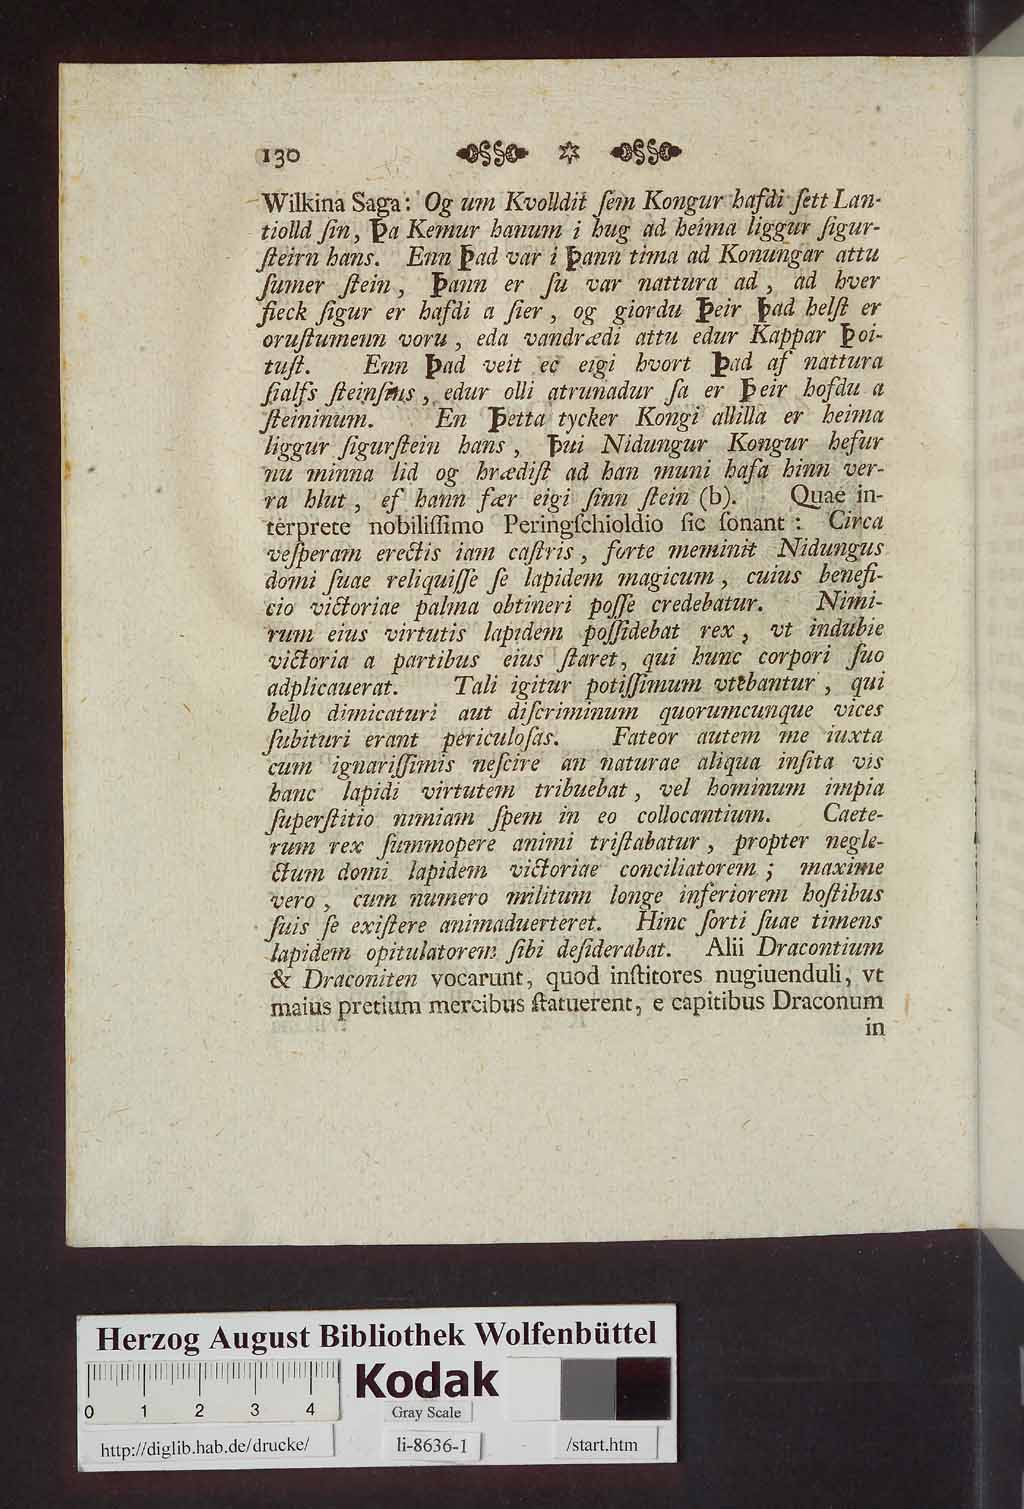 130
Wilkina Saga: Og um Kvolldit ſem Kongur hafdi ſett Lan-
tiolld ſin, Þa Kemur hanum i hug ad heima liggur ſigur-
ſteirn hans. Enn Þad var i Þann tima ad Konungar attu
ſumer ſtein, Þann er ſu var nattura ad, ad hver
fieck ſigur er hafdi a ſier, og giordu Þeir Þad helſt er
oruſtumenn voru, eda vandrædi attu edur Kappar Þoi-
tuſt. Enn Þad veit ec eigi hvort Þad af nattura
ſialfs ſteinſins, edur olli atrunadur ſa er Þeir hofdu a
ſteininum. En Þetta tycker Kongi allilla er heima
liggur ſigurſtein hans, Þui Nidungur Kongur hefur
nu minna lid og hrædiſt ad han muni hafa hinn ver-
ra hlut, ef hann fær eigi ſinn ſtein (b). Quae in-
terprete nobiliſſimo Peringſchioldio ſic ſonant: Circa
veſperam erectis iam caſtris, forte meminit Nidungus
domi ſuae reliquiſſe ſe lapidem magicum, cuius benefi-
cio victoriae palma obtineri poſſe credebatur. Nimi-
rum eius virtutis lapidem poſſidebat rex, vt indubie
victoria a partibus eius ſtaret, qui hunc corpori ſuo
adplicauerat. Tali igitur potiſſimum vtebantur, qui
bello dimicaturi aut diſcriminum quorumcunque vices
ſubituri erant periculoſas. Fateor autem me iuxta
cum ignariſſimis neſcire an naturae aliqua inſita vis
hanc lapidi virtutem tribuebat, vel hominum impia
ſuperſtitio nimiam ſpem in eo collocantium. Caete-
rum rex ſummopere animi triſtabatur, propter negle-
ctum domi lapidem victoriae conciliatorem; maxime
vero, cum numero militum longe inferiorem hoſtibus
ſuis ſe exiſtere animaduerteret. Hinc ſorti ſuae timens
lapidem opitulatorem ſibi deſiderabat. Alii Dracontium
& Draconiten vocarunt, quod inſtitores nugiuenduli, vt
maius pretium mercibus ſtatuerent, e capitibus Draconum
in
Herzog August Bibliothek Wolfenbüttel
0 1 2 3 4
Kodak
Gray Scale
http://diglib.hab.de/drucke/
li-8636-1
/start.htm